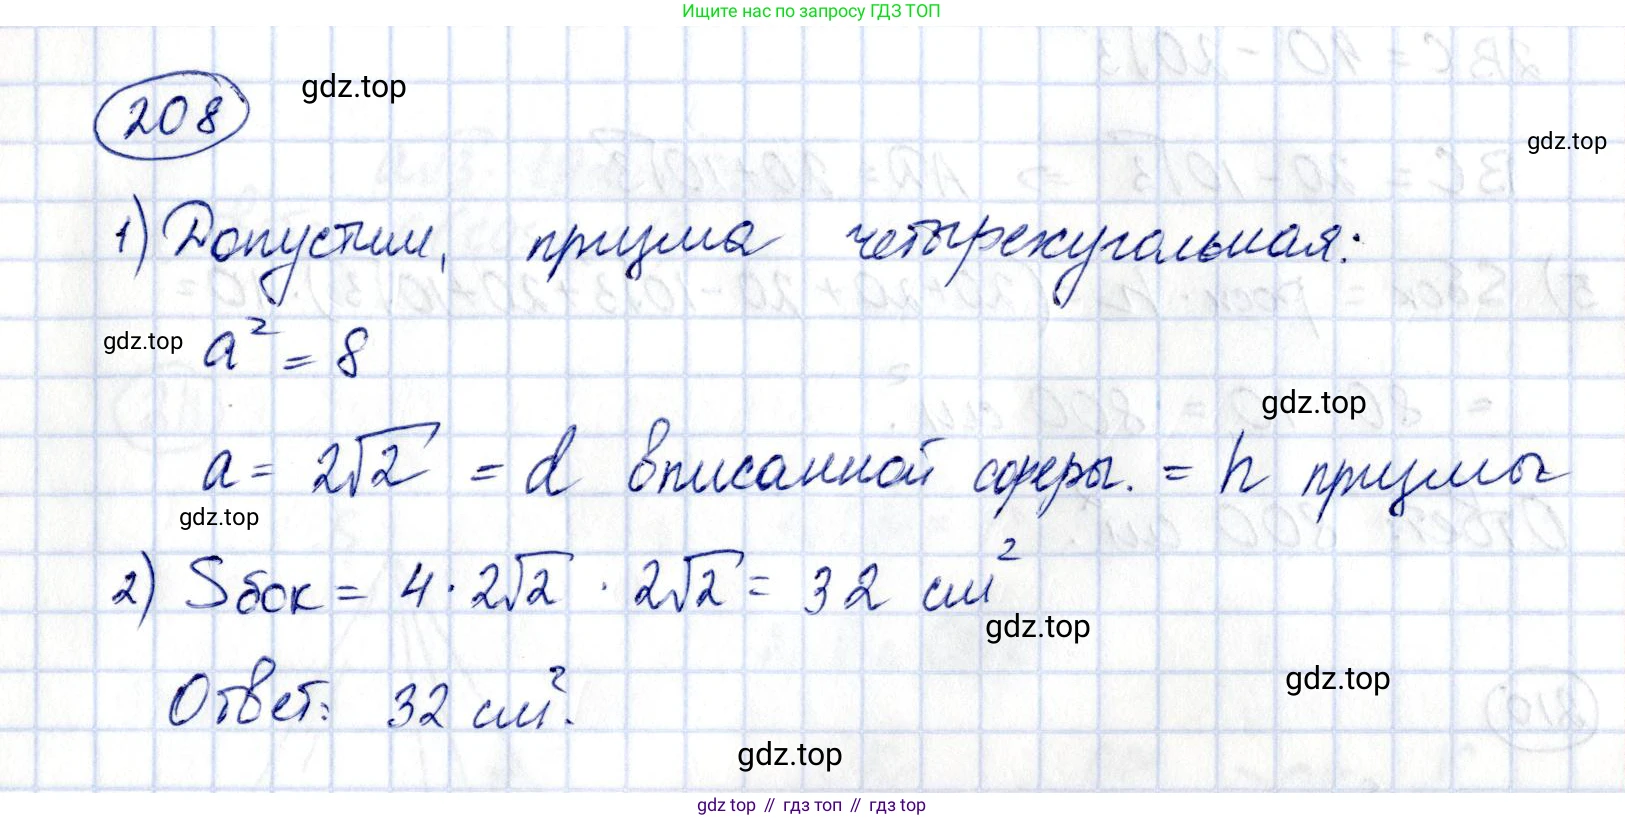 Ищите нас по запросу ГДЗ ТОП
208
gdz.top
gdz.top
1) Допустим, призма четырехугольная:
gdz.top
a² = 8
gdz.top
a = 2√2 = d вписанной сферы. = h призмы
gdz.top
2) Sбок = 4 · 2√2 · 2√2 = 32 см²
gdz.top
gdz.top
Ответ: 32 см².
gdz.top
gdz top // гдз топ // гдз top